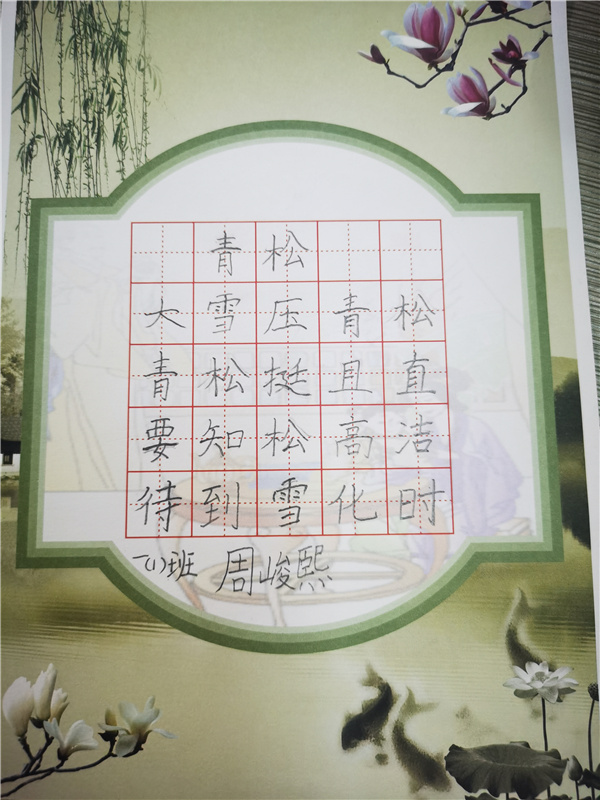 青松
大雪压青松
青松挺且直
要知松高洁
待到雪化时
一(1)班 周峻熙